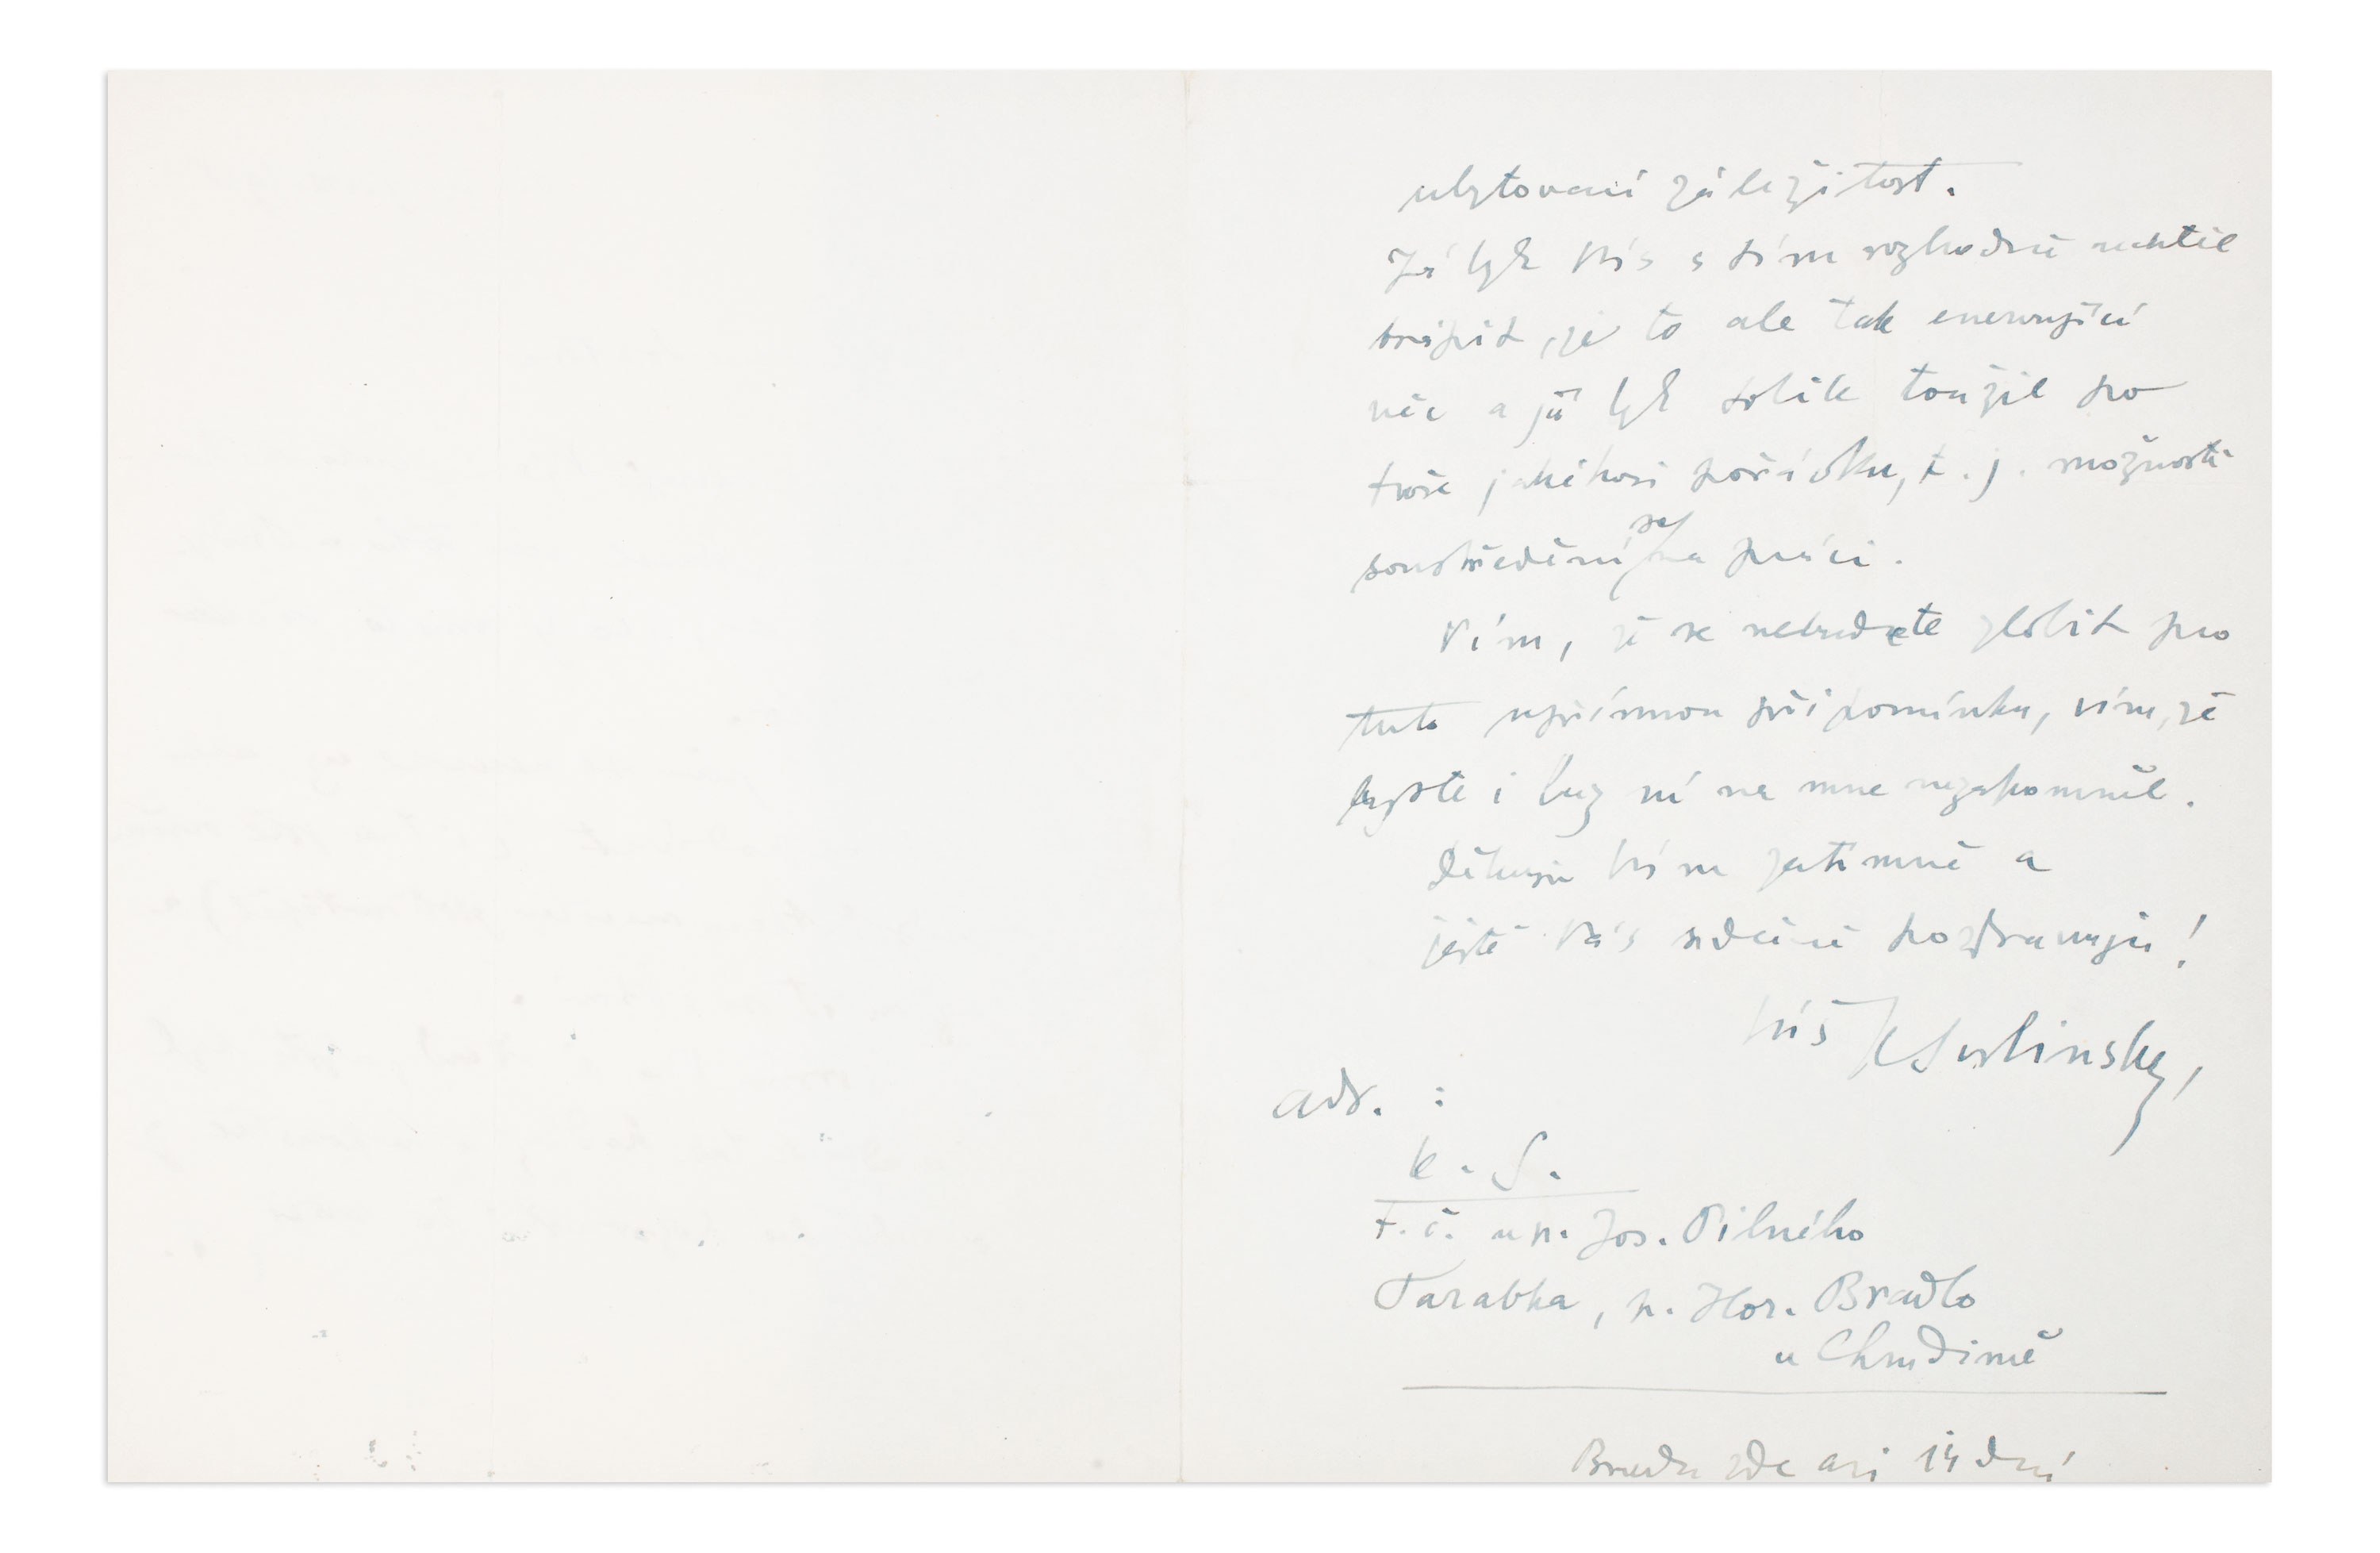 ubytovací záležitost.
Já bych Vás s tím rozhodně nechtěl
trápit, je to ale tak enervující
věc a já bych tolik toužil po
troše jakéhosi pořádku, t. j. možnosti
soustředění se na práci.
Vím, že se nebudete zlobit pro
tuto upřímnou připomínku, vím, že
byste i bez ní na mne nezapomněl.
Děkuji Vám zatímně a
ještě Vás srdečně pozdravuji!
Váš
adr. :
K. S.
t. č. u p. Jos. Pilného
Tarabka, p. Hor. Bradlo
u Chrudimě
Budu zde asi 14 dní